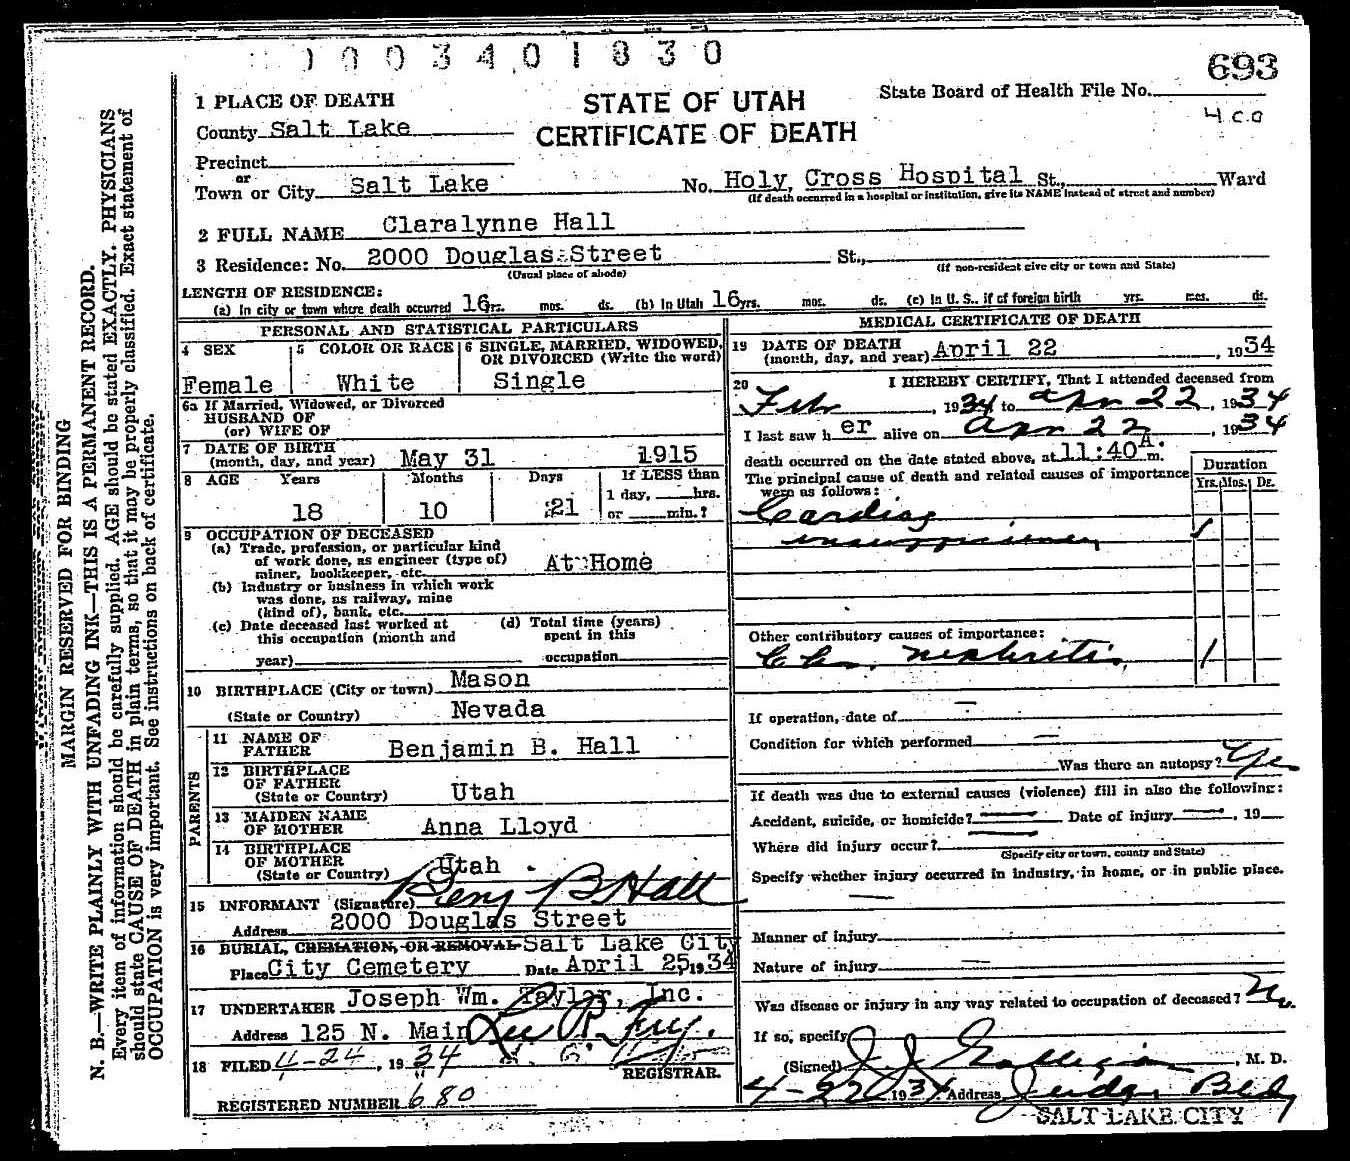 1003401830
693
1 PLACE OF DEATH
STATE OF UTAH
State Board of Health File No.
County Salt Lake
CERTIFICATE OF DEATH
4 C.O
Precinct
or
Town or City Salt Lake No. Holy Cross Hospital St., Ward
(If death occurred in a hospital or institution, give its NAME instead of street and number)
2 FULL NAME Claralynne Hall
3 Residence: No. 2000 Douglas Street St.,
(Usual place of abode) (If non-resident give city or town and State)
LENGTH OF RESIDENCE:
(a) In city or town where death occurred 16 yrs. mos. ds. (b) In Utah 16 yrs. mos. ds. (c) In U. S., if of foreign birth yrs. mos. ds.
PERSONAL AND STATISTICAL PARTICULARS
4 SEX 5 COLOR OR RACE 6 SINGLE, MARRIED, WIDOWED, OR DIVORCED (Write the word)
Female White Single
6a If Married, Widowed, or Divorced
HUSBAND OF
(or) WIFE OF
7 DATE OF BIRTH
(month, day, and year) May 31 1915
8 AGE Years Months Days If LESS than
1 day, hrs.
18 10 21 or min.?
9 OCCUPATION OF DECEASED
(a) Trade, profession, or particular kind
of work done, as engineer (type of)
miner, bookkeeper, etc. At Home
(b) Industry or business in which work
was done, as railway, mine
(kind of), bank, etc.
(c) Date deceased last worked at
this occupation (month and
year)
(d) Total time (years)
spent in this
occupation
10 BIRTHPLACE (City or town) Mason
(State or Country) Nevada
PARENTS
11 NAME OF
FATHER Benjamin B. Hall
12 BIRTHPLACE
OF FATHER
(State or Country) Utah
13 MAIDEN NAME
OF MOTHER Anna Lloyd
14 BIRTHPLACE
OF MOTHER
(State or Country) Utah
15 INFORMANT (Signature) Benj B Hall
Address 2000 Douglas Street
16 BURIAL, CREMATION, OR REMOVAL Salt Lake City
Place City Cemetery Date April 25, 1934
17 UNDERTAKER Joseph Wm. Taylor, Inc.
Address 125 N. Main
18 FILED 4-24, 1934
REGISTRAR.
REGISTERED NUMBER 680
MEDICAL CERTIFICATE OF DEATH
19 DATE OF DEATH
(month, day, and year) April 22, 1934
20 I HEREBY CERTIFY, That I attended deceased from
Feb, 1934 to Apr 22, 1934
I last saw h er alive on Apr 22, 1934
death occurred on the date stated above, at 11:40 A. m.
The principal cause of death and related causes of importance
were as follows:
Duration
Yrs. Mos. Ds.
Cardiac
insufficiency 1
Other contributory causes of importance:
Ch. nephritis, 1
If operation, date of —
Condition for which performed —
Was there an autopsy? Yes
If death was due to external causes (violence) fill in also the following:
Accident, suicide, or homicide? — Date of injury —, 19
Where did injury occur? —
(Specify city or town, county and State)
Specify whether injury occurred in industry, in home, or in public place.
—
Manner of injury
Nature of injury —
Was disease or injury in any way related to occupation of deceased? No.
If so, specify
(Signed) J J Galligan, M. D.
4-22 1934 Address Judge Bldg
SALT LAKE CITY
MARGIN RESERVED FOR BINDING
N. B.—WRITE PLAINLY WITH UNFADING INK—THIS IS A PERMANENT RECORD.
Every item of information should be carefully supplied. AGE should be stated EXACTLY. PHYSICIANS
should state CAUSE OF DEATH in plain terms, so that it may be properly classified. Exact statement of
OCCUPATION is very important. See instructions on back of certificate.